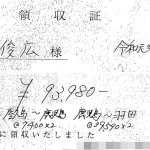 領収証
俊広 様
令和元
¥93,980-
鹿児島〜羽田
@7400×2 @39590×2
に領収いたしました